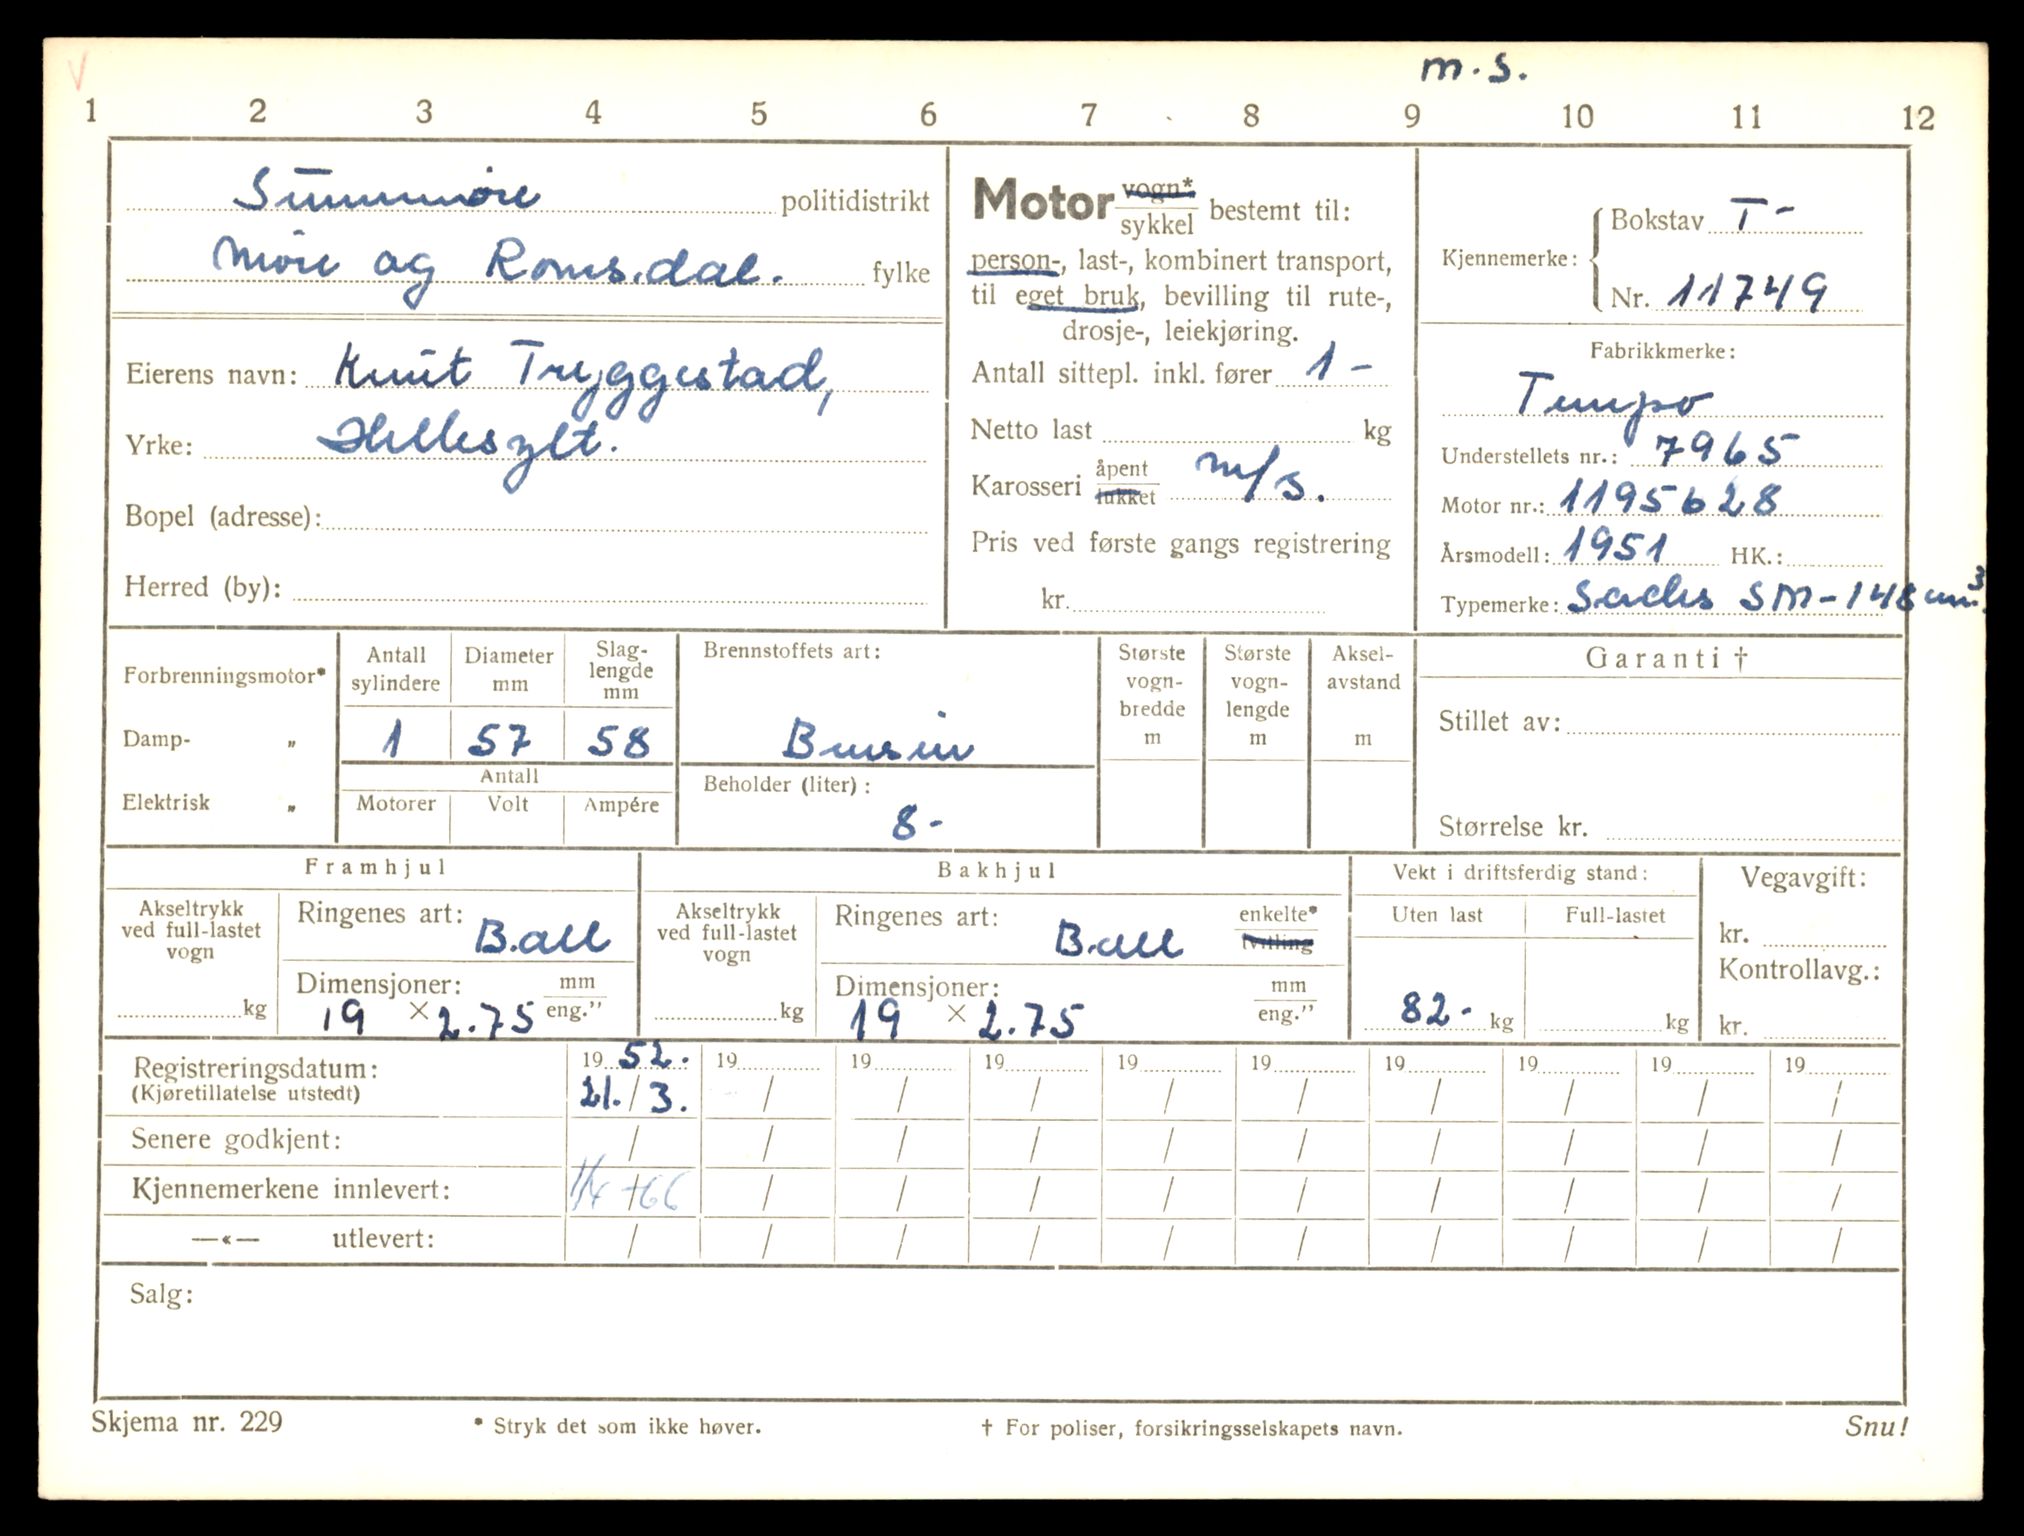 V
m.s.
1 2 3 4 5 6 7 8 9 10 11 12
Sunnmøre politidistrikt
Møre og Romsdal. fylke
Eierens navn: Knut Tryggestad,
Yrke: Hellesylt.
Bopel (adresse):
Herred (by):
Motor vogn* / sykkel bestemt til:
person-, last-, kombinert transport,
til eget bruk, bevilling til rute-,
drosje-, leiekjøring.
Antall sittepl. inkl. fører 1 -
Netto last kg
Karosseri åpent / lukket m/s.
Pris ved første gangs registrering
kr.
Kjennemerke: { Bokstav T-
Nr. 11749
Fabrikkmerke:
Tempo
Understellets nr.: 7965
Motor nr.: 1195628
Årsmodell: 1951 HK.:
Typemerke: Sachs SM-148 cm³.
Forbrenningsmotor*
Damp- „
Elektrisk „
Antall sylindere
Diameter mm
Slag-lengde mm
1 57 58
Antall
Motorer Volt Ampére
Brennstoffets art:
Bensin
Beholder (liter):
8-
Største vogn-bredde m
Største vogn-lengde m
Aksel-avstand m
Garanti †
Stillet av:
Størrelse kr.
Framhjul
Akseltrykk ved full-lastet vogn
kg
Ringenes art: B.all
Dimensjoner: mm / eng."
19 × 2.75
Bakhjul
Akseltrykk ved full-lastet vogn
kg
Ringenes art: B.all enkelte* / tvilling
Dimensjoner: mm / eng."
19 × 2.75
Vekt i driftsferdig stand:
Uten last Full-lastet
82.- kg kg
Vegavgift:
kr.
Kontrollavg.:
kr.
Registreringsdatum: 19 52. 19 19 19 19 19 19 19 19 19
(Kjøretillatelse utstedt) 21. / 3. / / / / / / / / /
Senere godkjent: / / / / / / / / / /
Kjennemerkene innlevert: 1/4 -66 / / / / / / / / /
—«— utlevert: / / / / / / / / / /
Salg:
Skjema nr. 229 * Stryk det som ikke høver. † For poliser, forsikringsselskapets navn. Snu!